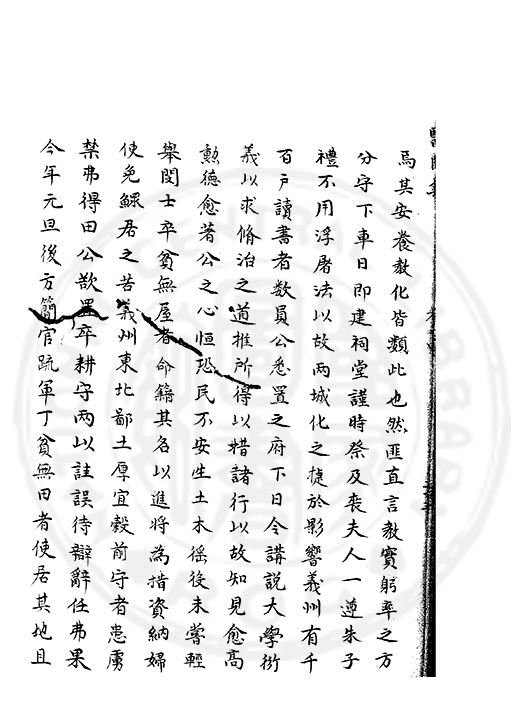 焉其安養教化皆類此也然匪直言教實躬率之方
分守下車日即建祠堂謹時祭及喪夫人一遵朱子
禮不用浮屠法以故兩城化之捷於影響義州有千
百戶讀書者数員公悉置之府下日令講説大學衍
義以求脩治之道推所得以措諸行以故知見愈高
勲德愈著公之心恒恐民不安生土木徭役未嘗輕
舉閔士卒貧無屋者命籍其名以進將為措資納婦
使免鰥居之苦義州東北鄙土厚宜穀前守者患虜
禁弗得田公欲置卒耕守兩以詿誤待辯辭任弗果
今年元旦後方簡官疏軍丁貧無田者使居其地且